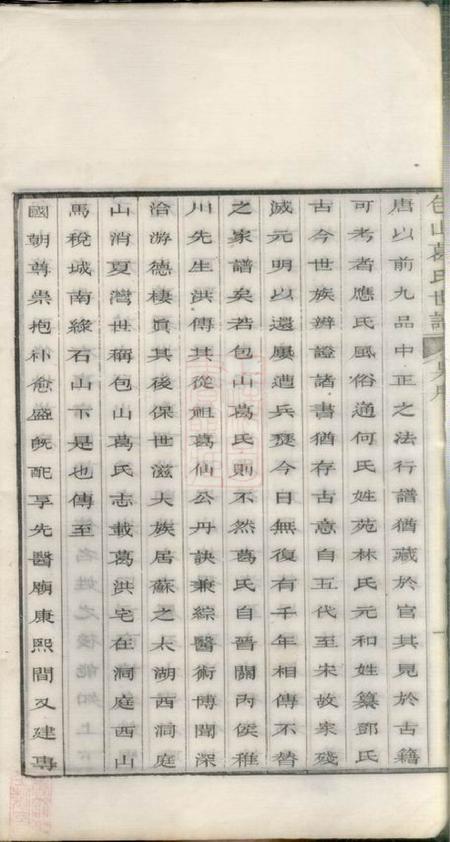 包山葛氏世譜
唐以前九品中正之法行譜猶藏於官其見於古籍
可考者應氏風俗通何氏姓苑林氏元和姓纂鄧氏
古今世族辨證諸書猶存古意自五代至宋故家殘
滅元明以還屢遭兵燹今日無復有千年相傳不替
之家譜矣若包山葛氏則不然葛氏自晉關內侯稚
川先生洪傳其從祖葛仙公丹訣兼綜醫術博聞深
洽游德棲真其後保世滋大族居蘇之太湖西洞庭
山消夏灣世稱包山葛氏志載葛洪宅在洞庭西山
馬稅城南綠石山下是也傳至
國朝尊崇抱朴愈盛旣配享先醫廟康熙間又建專